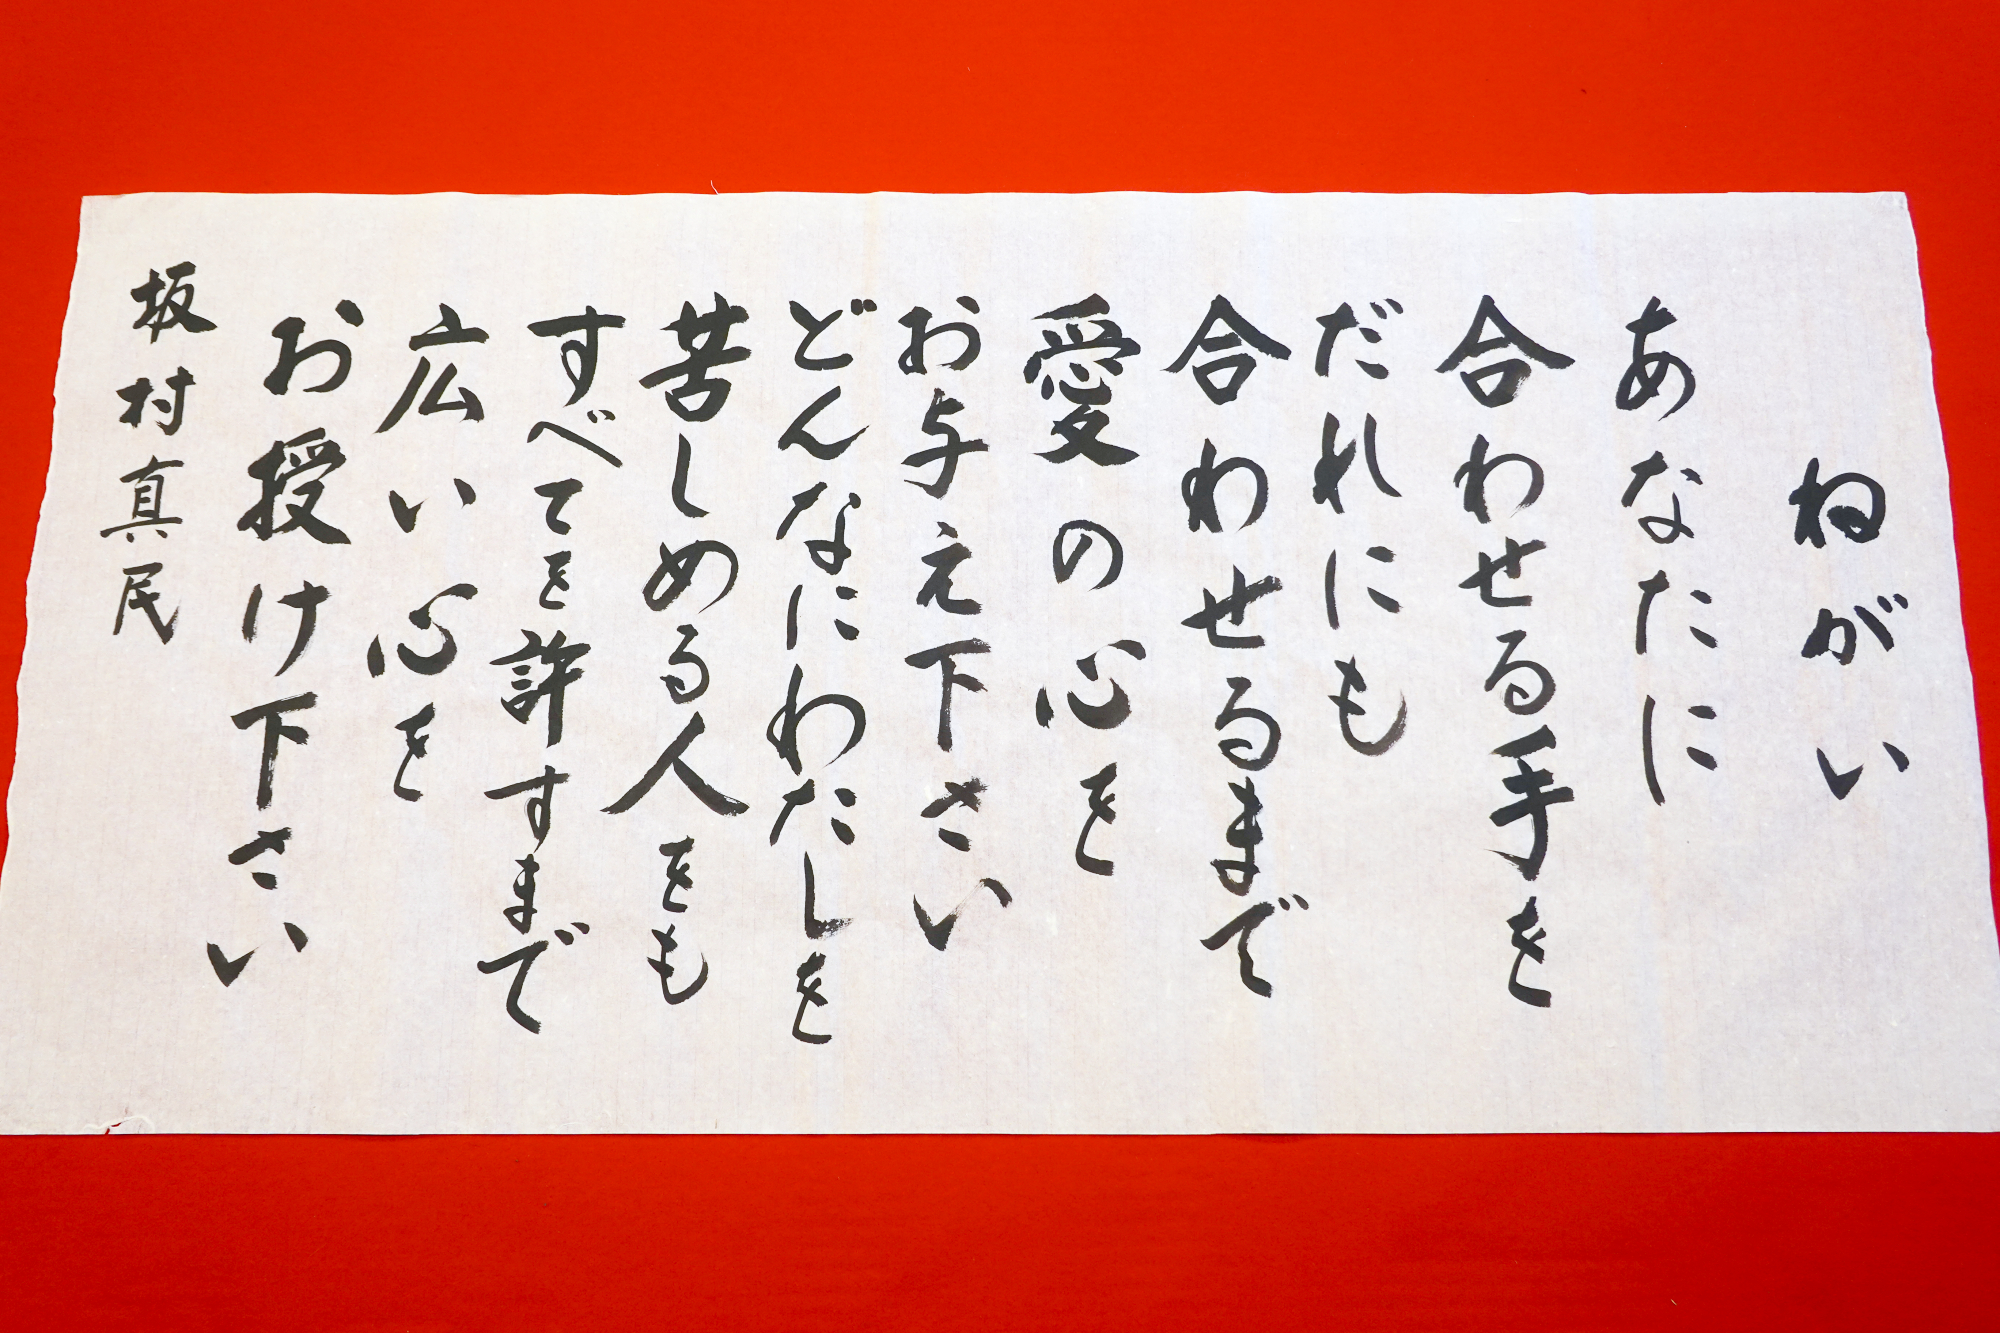 ねがい
あなたに
合わせる手を
だれにも
合わせるまで
愛の心を
お与え下さい
どんなにわたしを
苦しめる人をも
すべてを許すまで
広い心を
お授け下さい
坂村真民